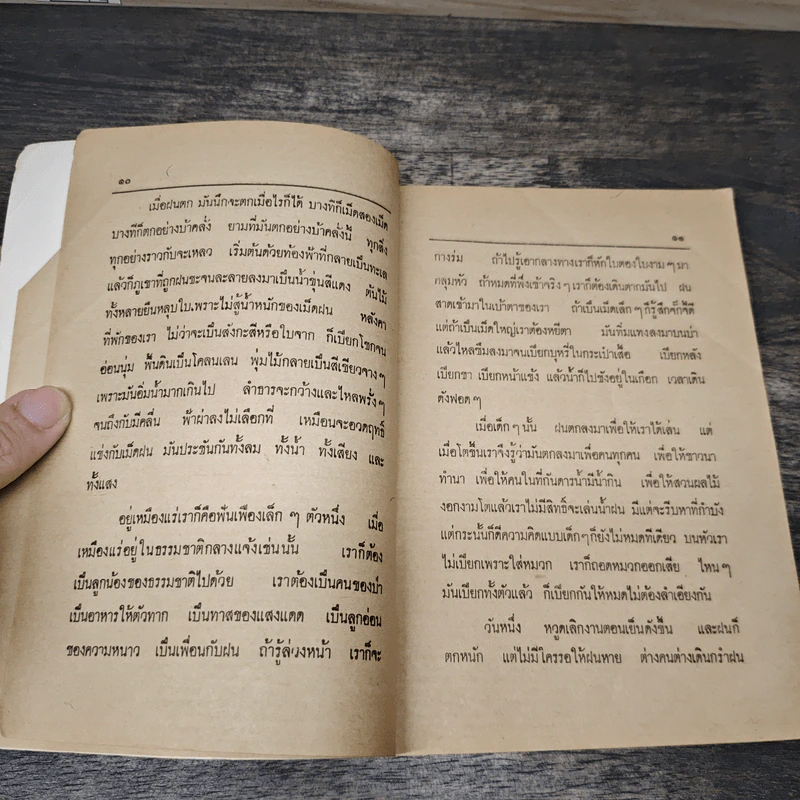 ๑๐
เมื่อฝนตก มันนึกจะตกเมื่อไรก็ได้ บางทีก็เม็ดสองเม็ด
บางทีก็ตกอย่างบ้าคลั่ง ยามที่มันตกอย่างบ้าคลั่งนี้ ทุกสิ่ง
ทุกอย่างราวกับจะเหลว เริ่มต้นด้วยท้องฟ้าที่กลายเป็นทะเล
แล้วก็ภูเขาที่ถูกฝนชะจนละลายลงมาเป็นน้ำขุ่นสีแดง ต้นไม้
ทั้งหลายยืนหลุบใบเพราะไม่สู้น้ำหนักของเม็ดฝน หลังคา
ที่พักของเรา ไม่ว่าจะเป็นสังกะสีหรือใบจาก ก็เปียกโชกจน
อ่อนนุ่ม พื้นดินเป็นโคลนเลน พุ่มไม้กลายเป็นสีเขียวจางๆ
เพราะมันอิ่มน้ำมากเกินไป ลำธารจะกว้างและไหลพรั่งๆ
จนถึงกับมีคลื่น ฟ้าผ่าลงไม่เลือกที่ เหมือนจะอวดฤทธิ์
แข่งกับเม็ดฝน มันประชันกันทั้งลม ทั้งน้ำ ทั้งเสียง และ
ทั้งแสง
อยู่เหมืองแร่เราก็คือฟันเฟืองเล็ก ๆ ตัวหนึ่ง เมื่อ
เหมืองแร่อยู่ในธรรมชาติกลางแจ้งเช่นนั้น เราก็ต้อง
เป็นลูกน้องของธรรมชาติไปด้วย เราต้องเป็นคนของป่า
เป็นอาหารให้ตัวทาก เป็นทาสของแสงแดด เป็นลูกอ่อน
ของความหนาว เป็นเพื่อนกับฝน ถ้ารู้ล่วงหน้า เราก็จะ
๑๑
กางร่ม ถ้าไปรู้เอากลางทางเราก็หักใบตองใบงามๆ มา
กลุมหัว ถ้าหมดที่พึ่งเข้าจริงๆ เราก็ต้องเดินตากมันไป ฝน
สาดเข้ามาในเบ้าตาของเรา ถ้าเป็นเม็ดเล็กๆ ก็รู้สึกจั๊กจี้ดี
แต่ถ้าเป็นเม็ดใหญ่เราต้องหยีตา มันทิ่มแทงลงมาบนบ่า
แล้วไหลซึมลงมาจนเปียกบุหรี่ในกระเป๋าเสื้อ เปียกหลัง
เปียกขา เปียกหน้าแข้ง แล้วน้ำก็ไปขังอยู่ในเกือก เวลาเดิน
ดังฟอดๆ
เมื่อเด็กๆ นั้น ฝนตกลงมาเพื่อให้เราได้เล่น แต่
เมื่อโตขึ้นเราจึงรู้ว่ามันตกลงมาเพื่อคนทุกคน เพื่อให้ชาวนา
ทำนา เพื่อให้คนในที่กันดารน้ำมีน้ำกิน เพื่อให้สวนผลไม้
งอกงามโตแล้วเราไม่มีสิทธิ์จะเล่นน้ำฝน มีแต่จะรีบหาที่กำบัง
แต่กระนั้นก็ดีความคิดแบบเด็กๆ ก็ยังไม่หมดทีเดียว บนหัวเรา
ไม่เปียกเพราะใส่หมวก เราก็ถอดหมวกออกเสีย ไหนๆ
มันเปียกทั้งตัวแล้ว ก็เปียกกันให้หมดไม่ต้องลำเอียงกัน
วันหนึ่ง หวูดเลิกงานตอนเย็นดังขึ้น และฝนก็
ตกหนัก แต่ไม่มีใครรอให้ฝนหาย ต่างคนต่างเดินกรำฝน